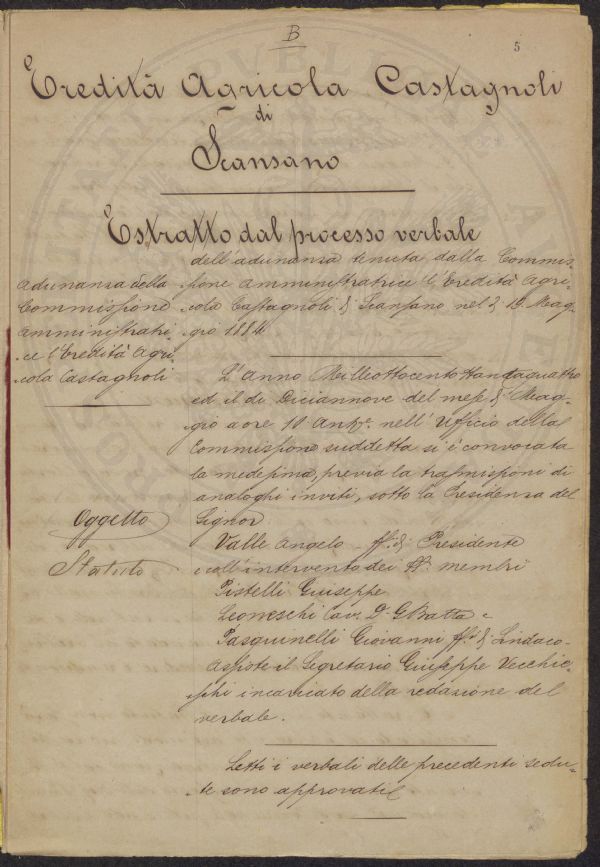 B
5
Eredità Agricola Castagnoli
di
Scansano
Estratto dal processo verbale
dell'adunanza tenuta dalla Commis-
sione amministratrice l'Eredità Agri-
cola Castagnoli di Scansano nel dì 19 Mag-
gio 1884
Adunanza della
Commissione
Amministratri-
ce l'Eredità Agri-
cola Castagnoli
L'Anno Milleottocentottantaquattro
ed il dì Diciannove del mese di Mag-
gio a ore 10 Ant. nell'Ufficio della
Commissione suddetta si è convocata
la medesima, previa la trasmissioni di
analoghi inviti, sotto la Presidenza del
Signor
Oggetto
Statuto
Valle Angelo ff. di Presidente
coll'intervento dei SS. membri
Pistelli Giuseppe
Leoneschi Cav. Dr. G Batta e
Pasquinelli Giovanni ff. di Sindaco
Assiste il Segretario Giuseppe Vecchie-
schi incaricato della redazione del
verbale.
Letti i verbali delle precedenti sedu-
te sono approvati